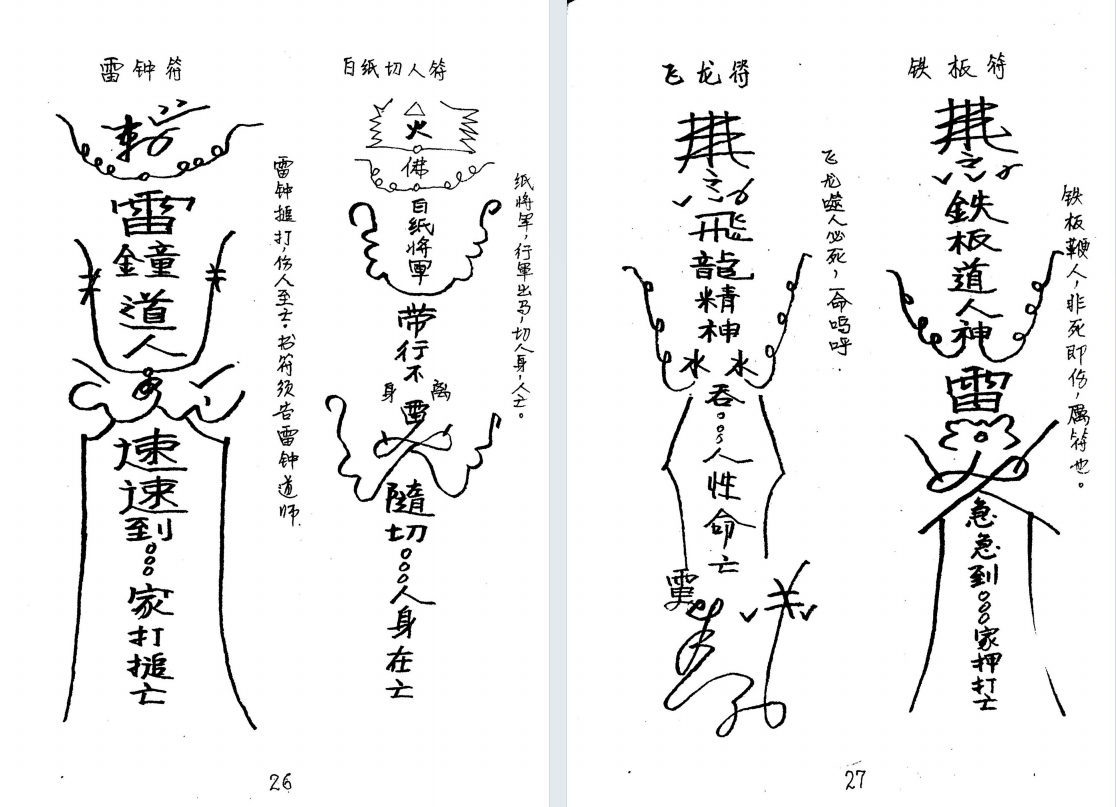 雷钟符
雷
鐘
道
人
速
速
到
家
打
搥
亡
雷钟搥打,伤人至亡。书符须告雷钟道师.
白纸切人符
火
佛
白
纸
将
軍
带
行
不
身 离
雷
隨
切
人
身
在
亡
纸将军,行軍出马,切人身,人亡。
26
飞龙符
飛
龍
精
神
水 水
吞
人
性
命
亡
飞龙噬人必死,一命呜呼.
铁板符
鉄
板
道
人
神
雷
急
急
到
家
押
打
亡
铁板鞭人,非死即伤,厲符也。
27